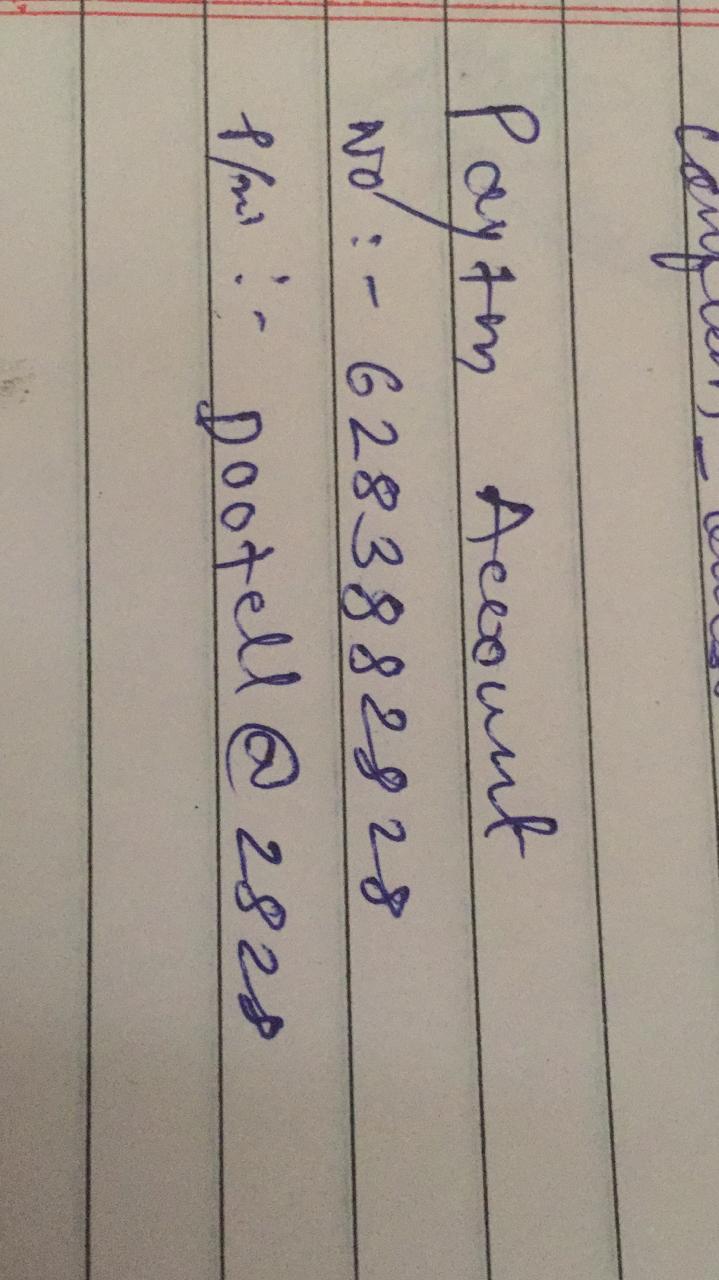 Paytm Account
No :- 6283882828
P/w :- Dootell @ 2828